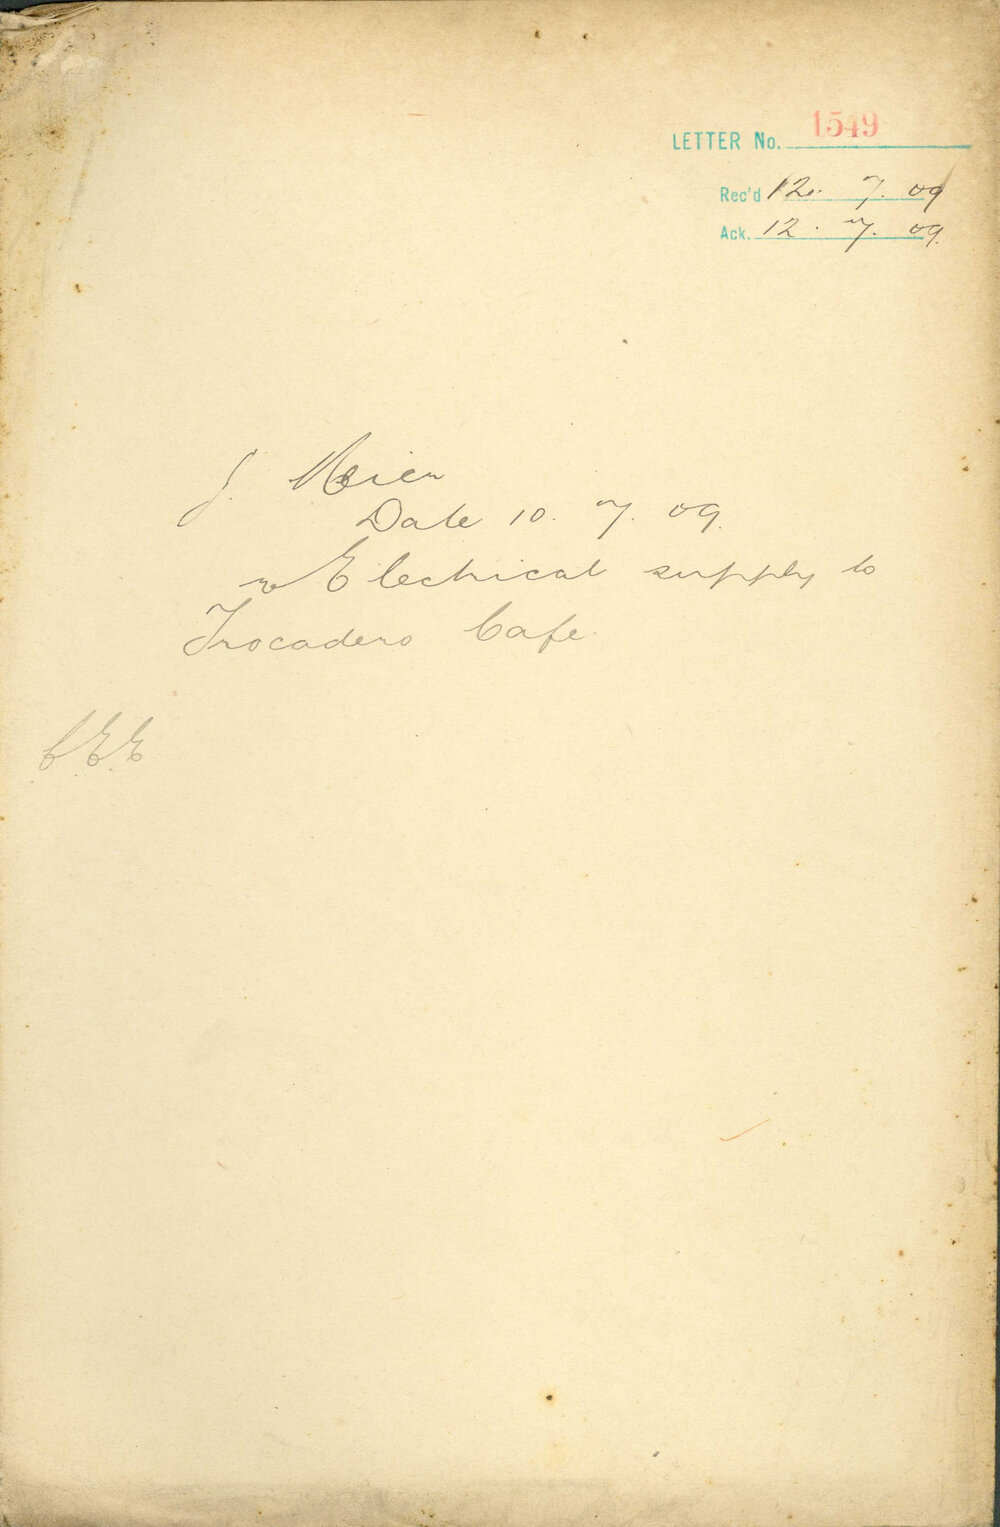 LETTER No. 1549
Rec'd 12. 7. 09
Ack. 12. 7. 09.
J. Meier
Date 10. 7. 09.
re Electrical supply to
Trocadero Cafe.
C.E.E